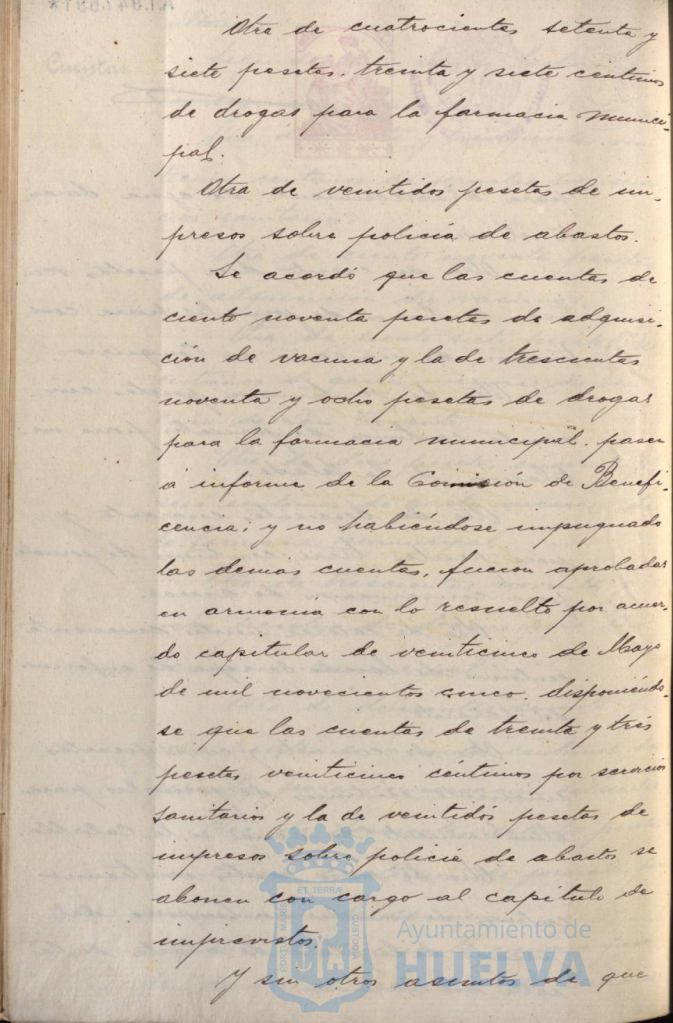 Otra de cuatrocientas setenta y
siete pesetas, treinta y siete centimos
de drogas para la farmacia munici-
pal.
Otra de veintidos pesetas de im-
presos sobre policía de abastos.
Se acordó que las cuentas de
ciento noventa pesetas de adquisi-
ción de vacuna y la de trescientas
noventa y ocho pesetas de drogas
para la farmacia municipal, pasen
á informe de la Comisión de Benefi-
cencia; y no habiéndose impugnado
las demas cuentas, fueron aprobadas
en armonia con lo resuelto por acuer-
do capitular de veinticinco de Mayo
de mil novecientos cinco, disponiéndo-
se que las cuentas de treinta y trés
pesetas veinticinco céntimos por servicios
sanitarios y la de veintidós pesetas de
impresos sobre policía de abastos se
abonen con cargo al capitulo de
imprevistos.
Y sin otros asuntos de que
PORT MARIS ET TERRÆ CUSTODIA
Ayuntamiento de
HUELVA